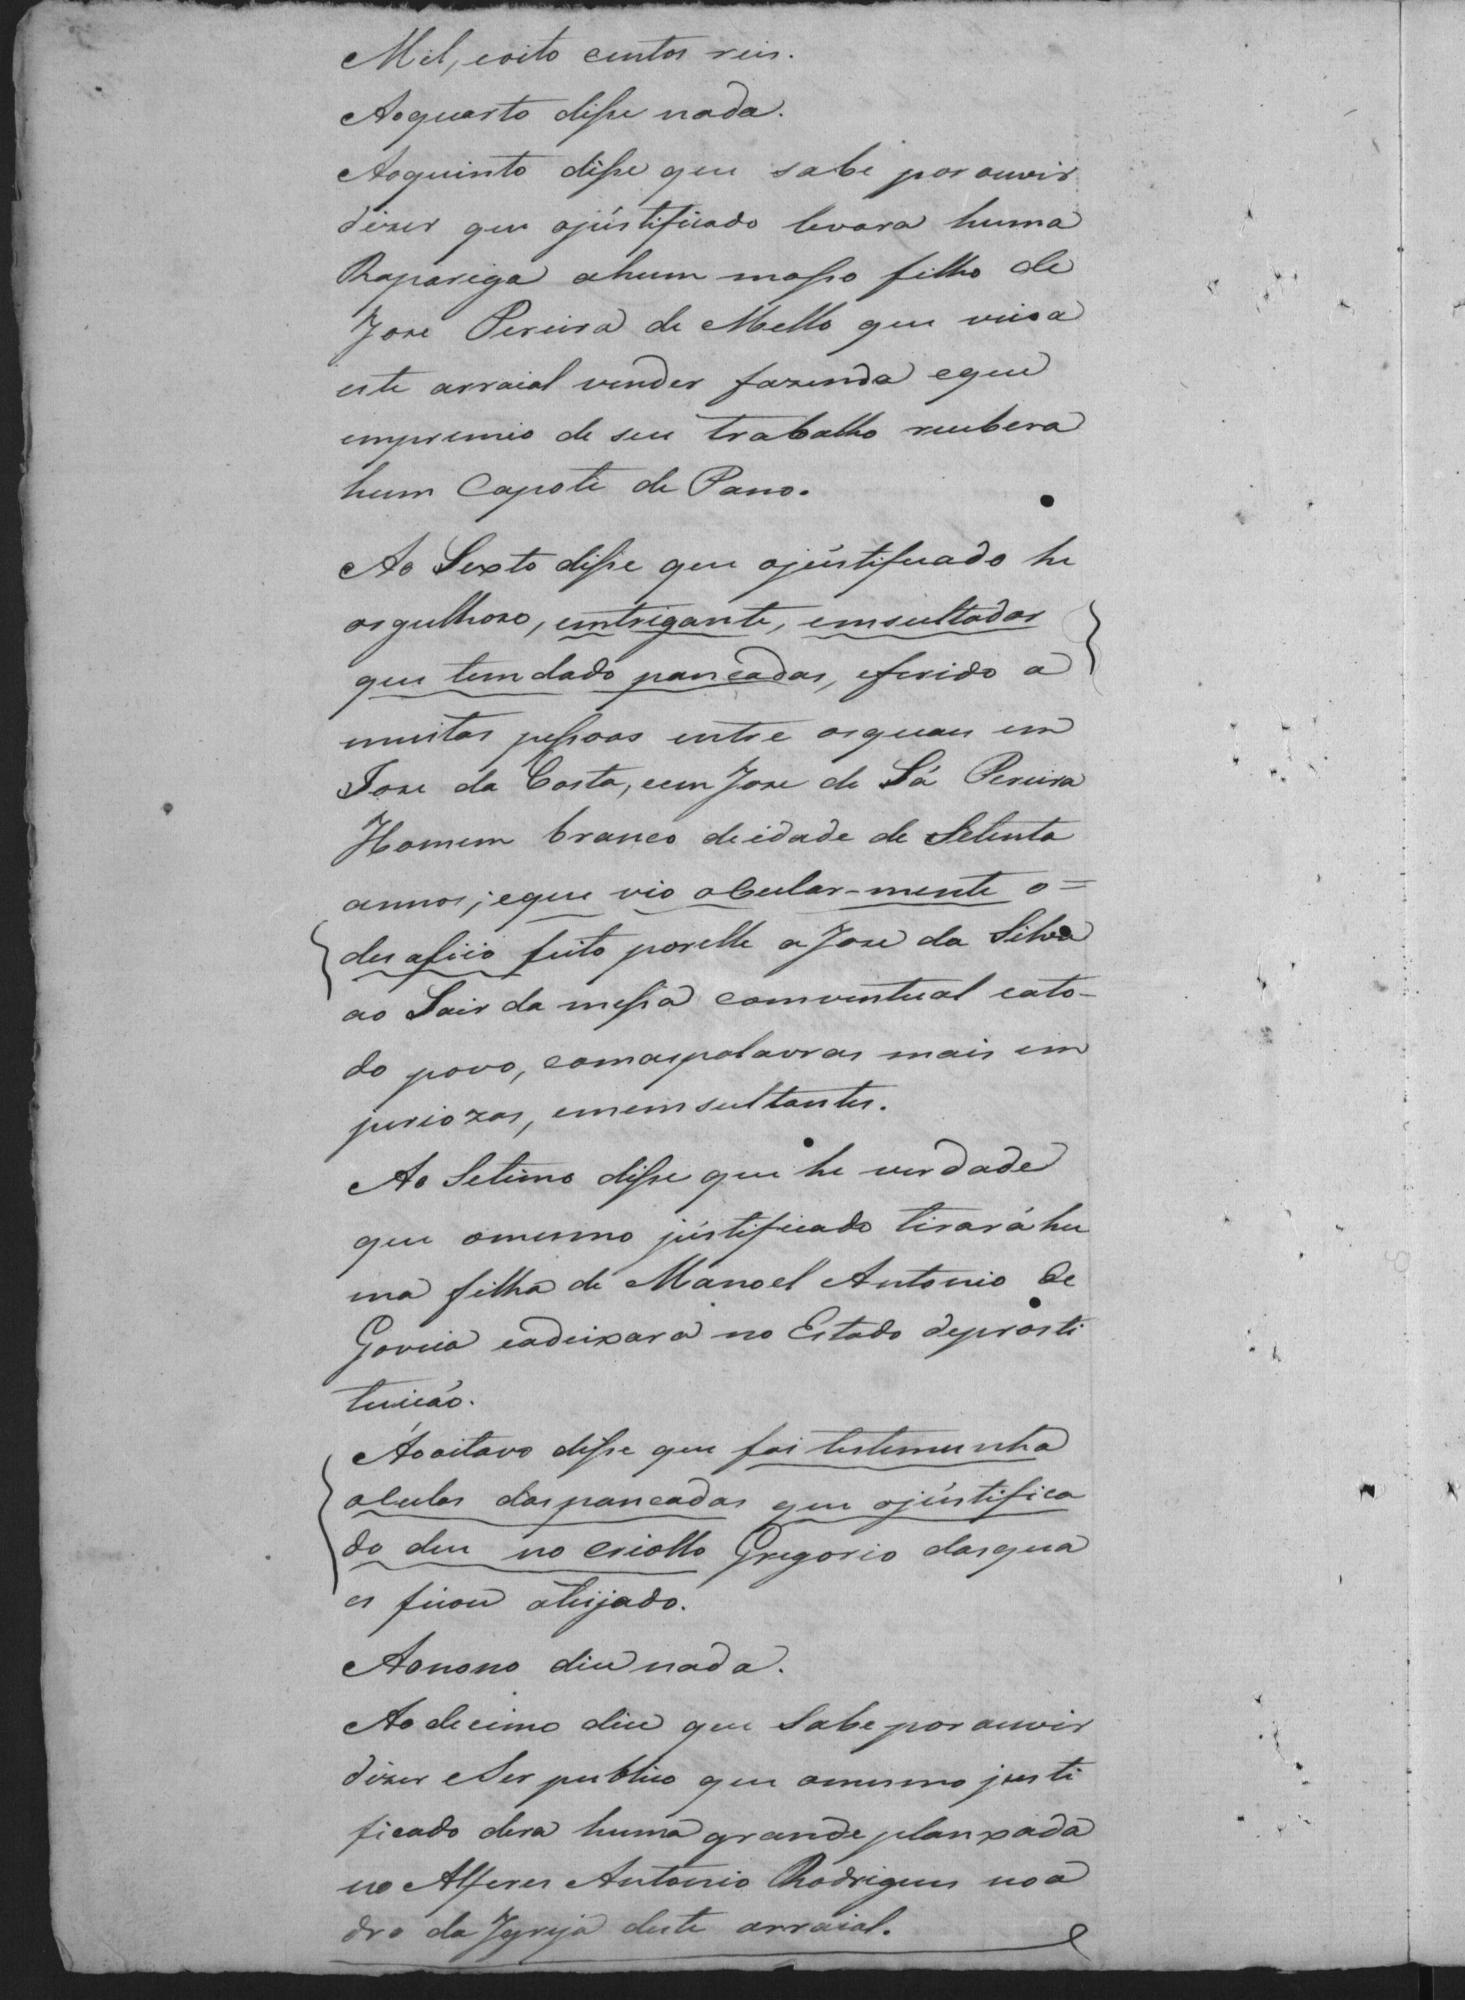 Mil, eoito centos reis.
Aoquarto disse nada.
Aoquinto disse que sabe por ouvir
dizer que ojustificado levara huma
Rapariga ahum mosso filho de
Joze Pereira de Mello que veio a
este arraial vender fazenda eque
empremio de seu trabalho recebera
hum Capote de Pano.
Ao Sexto disse que ojustificado he
orgulhozo, emtrigante, emsultador
que tem dado pancadas, eferido a
muitas pessoas entre asquaes em
Joze da Costa, eem Joze de Sá Pereira
Homem branco deidade de Setenta
annos; eque vio ocular-mente o=
desafiio feito porelle a Joze da Silva
ao Sair da missa comventual eato-
do povo, comaspalavras mais im
juriozas, eemsultantes.
Ao Setimo disse que he verdade
que omesmo justificado tirará hu
ma filha de Manoel Antonio de
Gouvia eadeixara no Estado deprosti
tuicáo.
Aooitavo disse que foi testemunha
ocular daspancadas que ojustifica
do deu no criollo Gregorio dasqua
es ficou aleijado.
Aonono dice nada.
Ao decimo dice que Sabe por ouvir
dizer eSer publico que omesmo justi
ficado dera huma grande planxada
no Alferes Antonio Rodrigues no a
dro da Igreja deste arraial.